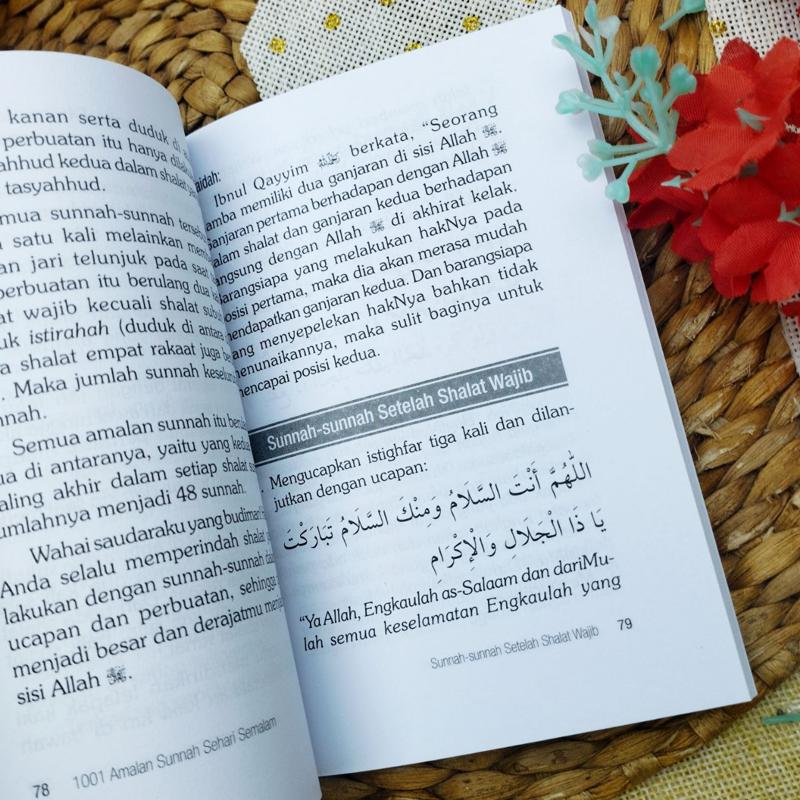 kanan serta duduk di
perbuatan itu hanya
ahhud kedua dalam
tasyahhud.
mua sunnah-sunnah
satu kali melainkan
an jari telunjuk pada saat
perbuatan itu berulang dua
at wajib kecuali shalat
uk istirahah (duduk di antara
a shalat empat rakaat juga
. Maka jumlah sunnah
nnah.
Semua amalan sunnah itu
ua di antaranya, yaitu yang
aling akhir dalam setiap shalat
umlahnya menjadi 48 sunnah.
Wahai saudaraku yang budiman!
Anda selalu memperindah shalat
lakukan dengan sunnah-sunnah
ucapan dan perbuatan, sehingga
menjadi besar dan derajatmu
sisi Allah ﷻ.
78 1001 Amalan Sunnah Sehari Semalam
aidah:
Ibnul Qayyim berkata, “Seorang
amba memiliki dua ganjaran di sisi Allah ﷻ.
Ganjaran pertama berhadapan dengan Allah ﷻ
dalam shalat dan ganjaran kedua berhadapan
langsung dengan Allah ﷻ di akhirat kelak.
Barangsiapa yang melakukan hakNya pada
posisi pertama, maka dia akan merasa mudah
mendapatkan ganjaran kedua. Dan barangsiapa
yang menyepelekan hakNya bahkan tidak
menunaikannya, maka sulit baginya untuk
mencapai posisi kedua.
Sunnah-sunnah Setelah Shalat Wajib
Mengucapkan istighfar tiga kali dan dilan-
jutkan dengan ucapan:
اللّٰهُمَّ أَنْتَ السَّلَامُ وَمِنْكَ السَّلَامُ تَبَارَكْتَ
يَا ذَا الْجَلَالِ وَالْإِكْرَامِ
“Ya Allah, Engkaulah as-Salaam dan dariMu-
lah semua keselamatan Engkaulah yang
Sunnah-sunnah Setelah Shalat Wajib 79